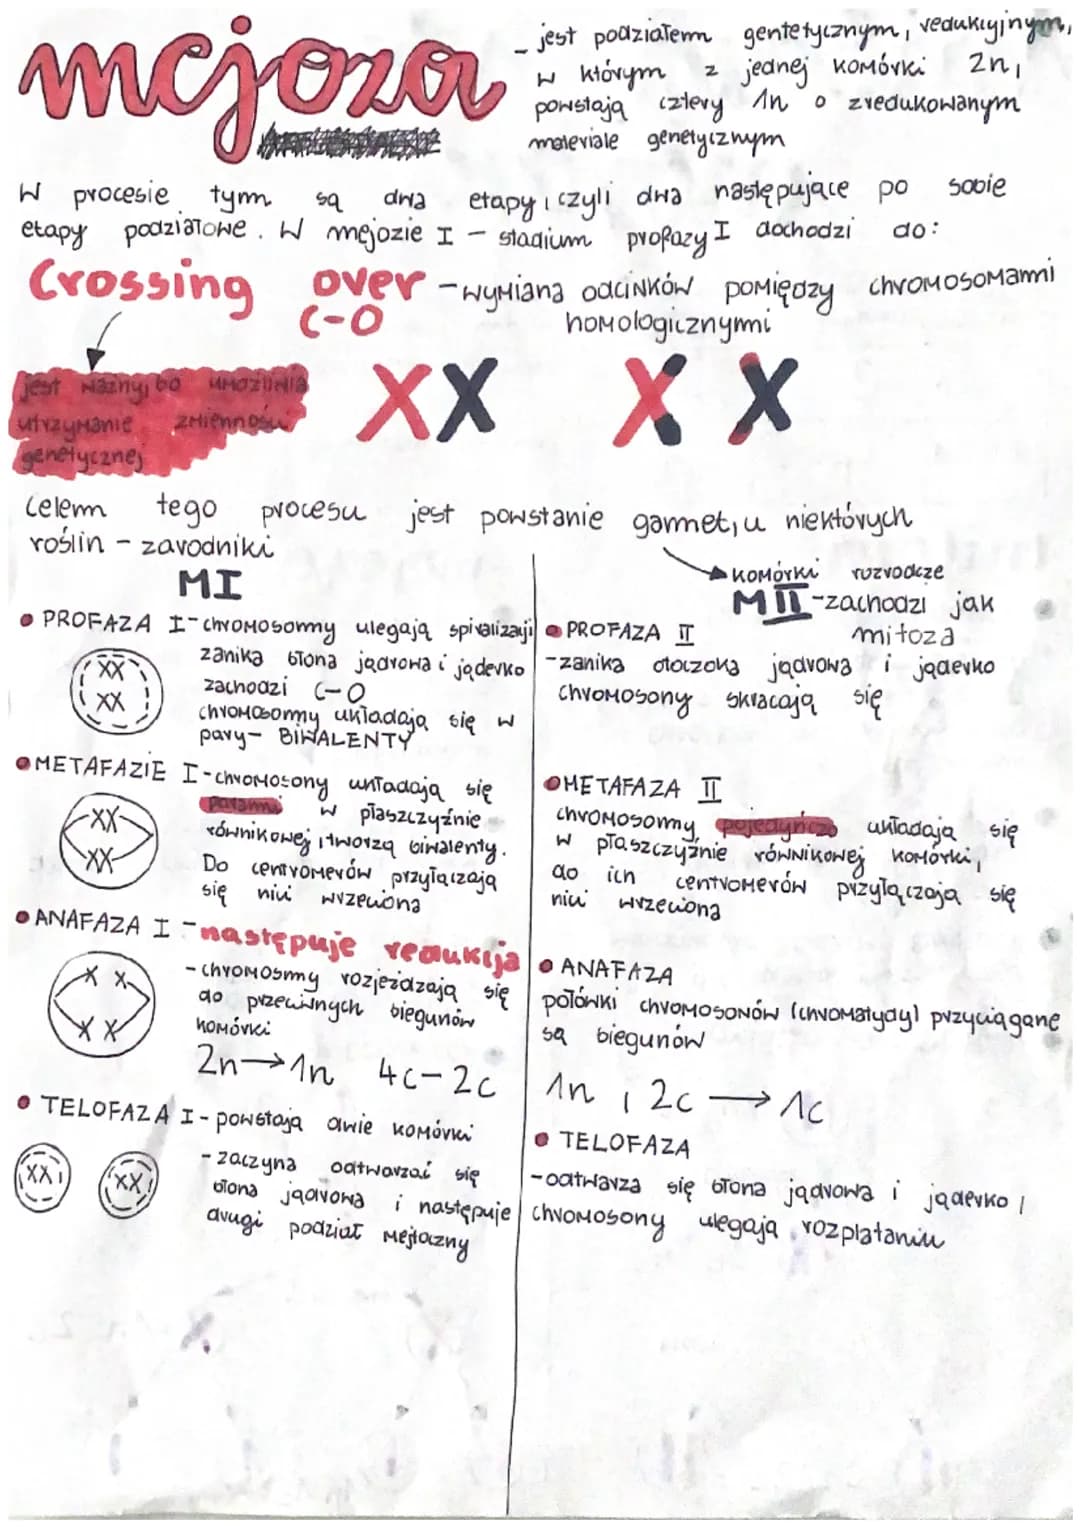 mejoza
- jest podziałem gentetycznym, redukcyjnym,
w którym z jednej komórki 2n,
powstają cztery 1n o zredukowanym
materiale genetycznym
W procesie tym są dwa etapy, czyli dwa następujące po sobie
etapy podziałowe. W mejozie I - stadium profazy I dochodzi do:
Crossing over - wymiana odcinków pomiędzy chromosomami
C-O homologicznymi
jest ważny, bo umożliwia
utrzymanie zmienności
genetycznej
Celem tego procesu jest powstanie gamet, u niektórych
roślin - zarodniki
komórki rozrodcze
MI
MII - zachodzi jak
mitoza
• PROFAZA I - chromosomy ulegają spiralizacji
zanika błona jądrowa i jąderko
zachodzi C-O
chromosomy układają się w
pary - BIWALENTY
XX
XX
• METAFAZIE I - chromosony układają się
parami w płaszczyźnie
równikowej i tworzą biwalenty.
Do centromerów przyłączają
się nici wrzeciona
XX
XX
• ANAFAZA I - następuje redukcja
- chromosmy rozjeżdzają się
do przeciwnych biegunów
komórki
2n → 1n 4c - 2c
X X
X X
• TELOFAZA I - powstają dwie komórki
- zaczyna odtwarzać się
błona jądrowa i następuje
drugi podział mejtoczny
XX
XX
• PROFAZA II
- zanika otoczka jądrowa i jąderko
chromosony skracają się
• METAFAZA II
chromosomy pojedyńczo układają się
w płaszczyźnie równikowej komórki,
do ich centromerów przyłączają się
nici wrzeciona
• ANAFAZA
połówki chromosonów (chromatydy) przyciągane
są biegunów
1n, 2c → 1c
• TELOFAZA
- odtwarza się błona jądrowa i jąderko,
chromosony ulegają rozplataniu